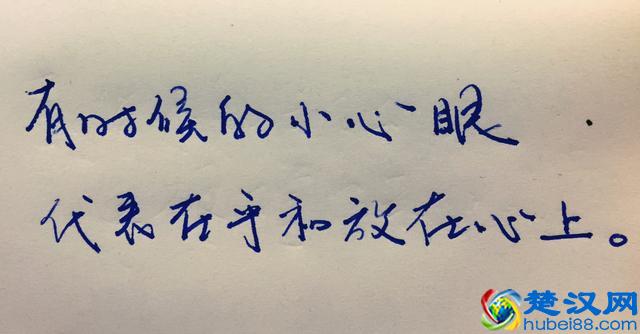 有时候的小心眼.
代表在乎和放在心上。
楚汉网
hubei88.com